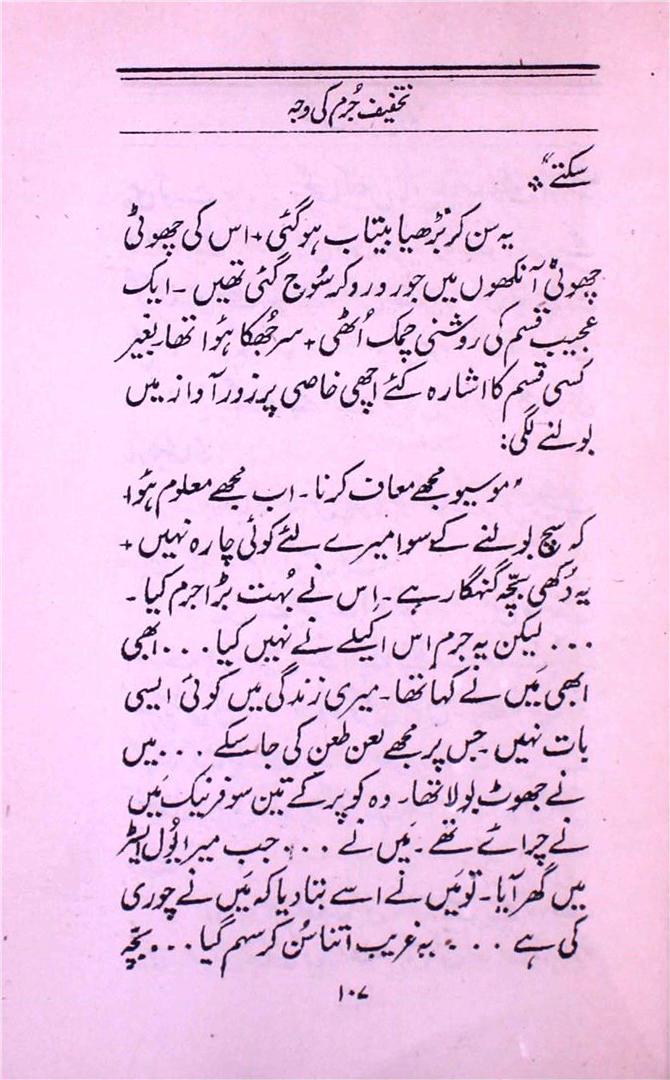 تخفیف جُرم کی وجہ
سکتے"۔
یہ سن کر بُڑھیا بیتاب ہو گئی + اس کی چھوٹی
چھوٹی آنکھوں میں جو رو رو کر سُوج گئی تھیں ۔ ایک
عجیب قسم کی روشنی چمک اُٹھی + سر جُھکا ہؤا تھا ۔ بغیر
کسی قسم کا اشارہ کئے اچھی خاصی پرزور آواز میں
بولنے لگی:
"موسیو مجھے معاف کرنا ۔ اب مجھے معلوم ہؤا
کہ سچ بولنے کے سوا میرے لئے کوئی چارہ نہیں +
یہ دُکھی بچّہ گنہگار ہے ۔ اِس نے بُہت بڑا جرم کیا ۔
... لیکن یہ جرم اس اکیلے نے نہیں کیا ... ابھی
ابھی مَیں نے کہا تھا ۔ میری زندگی میں کوئی ایسی
بات نہیں جس پر مجھے لعن طعن کی جا سکے ... میں
نے جھوٹ بولا تھا ۔ وہ کوپر کے تین سو فرنیک مَیں
نے چرائے تھے ۔ مَیں نے ... جب میرا پُول ایسٹر
میں گھر آیا ۔ تو مَیں نے اسے بتا دیا کہ مَیں نے چوری
کی ہے ... یہ غریب اتنا سُن کر سہم گیا ... بچّہ
۱۰۷